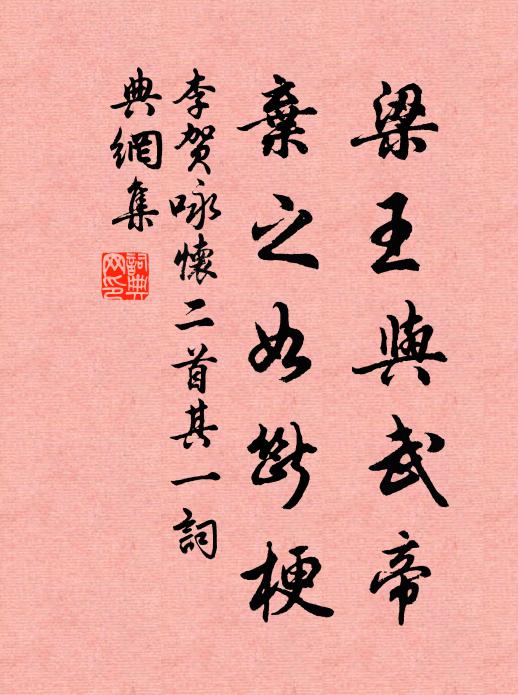 梁王與武帝
棄之如斷梗
李賀咏懷二首其一詞
典網集
詞典
网印